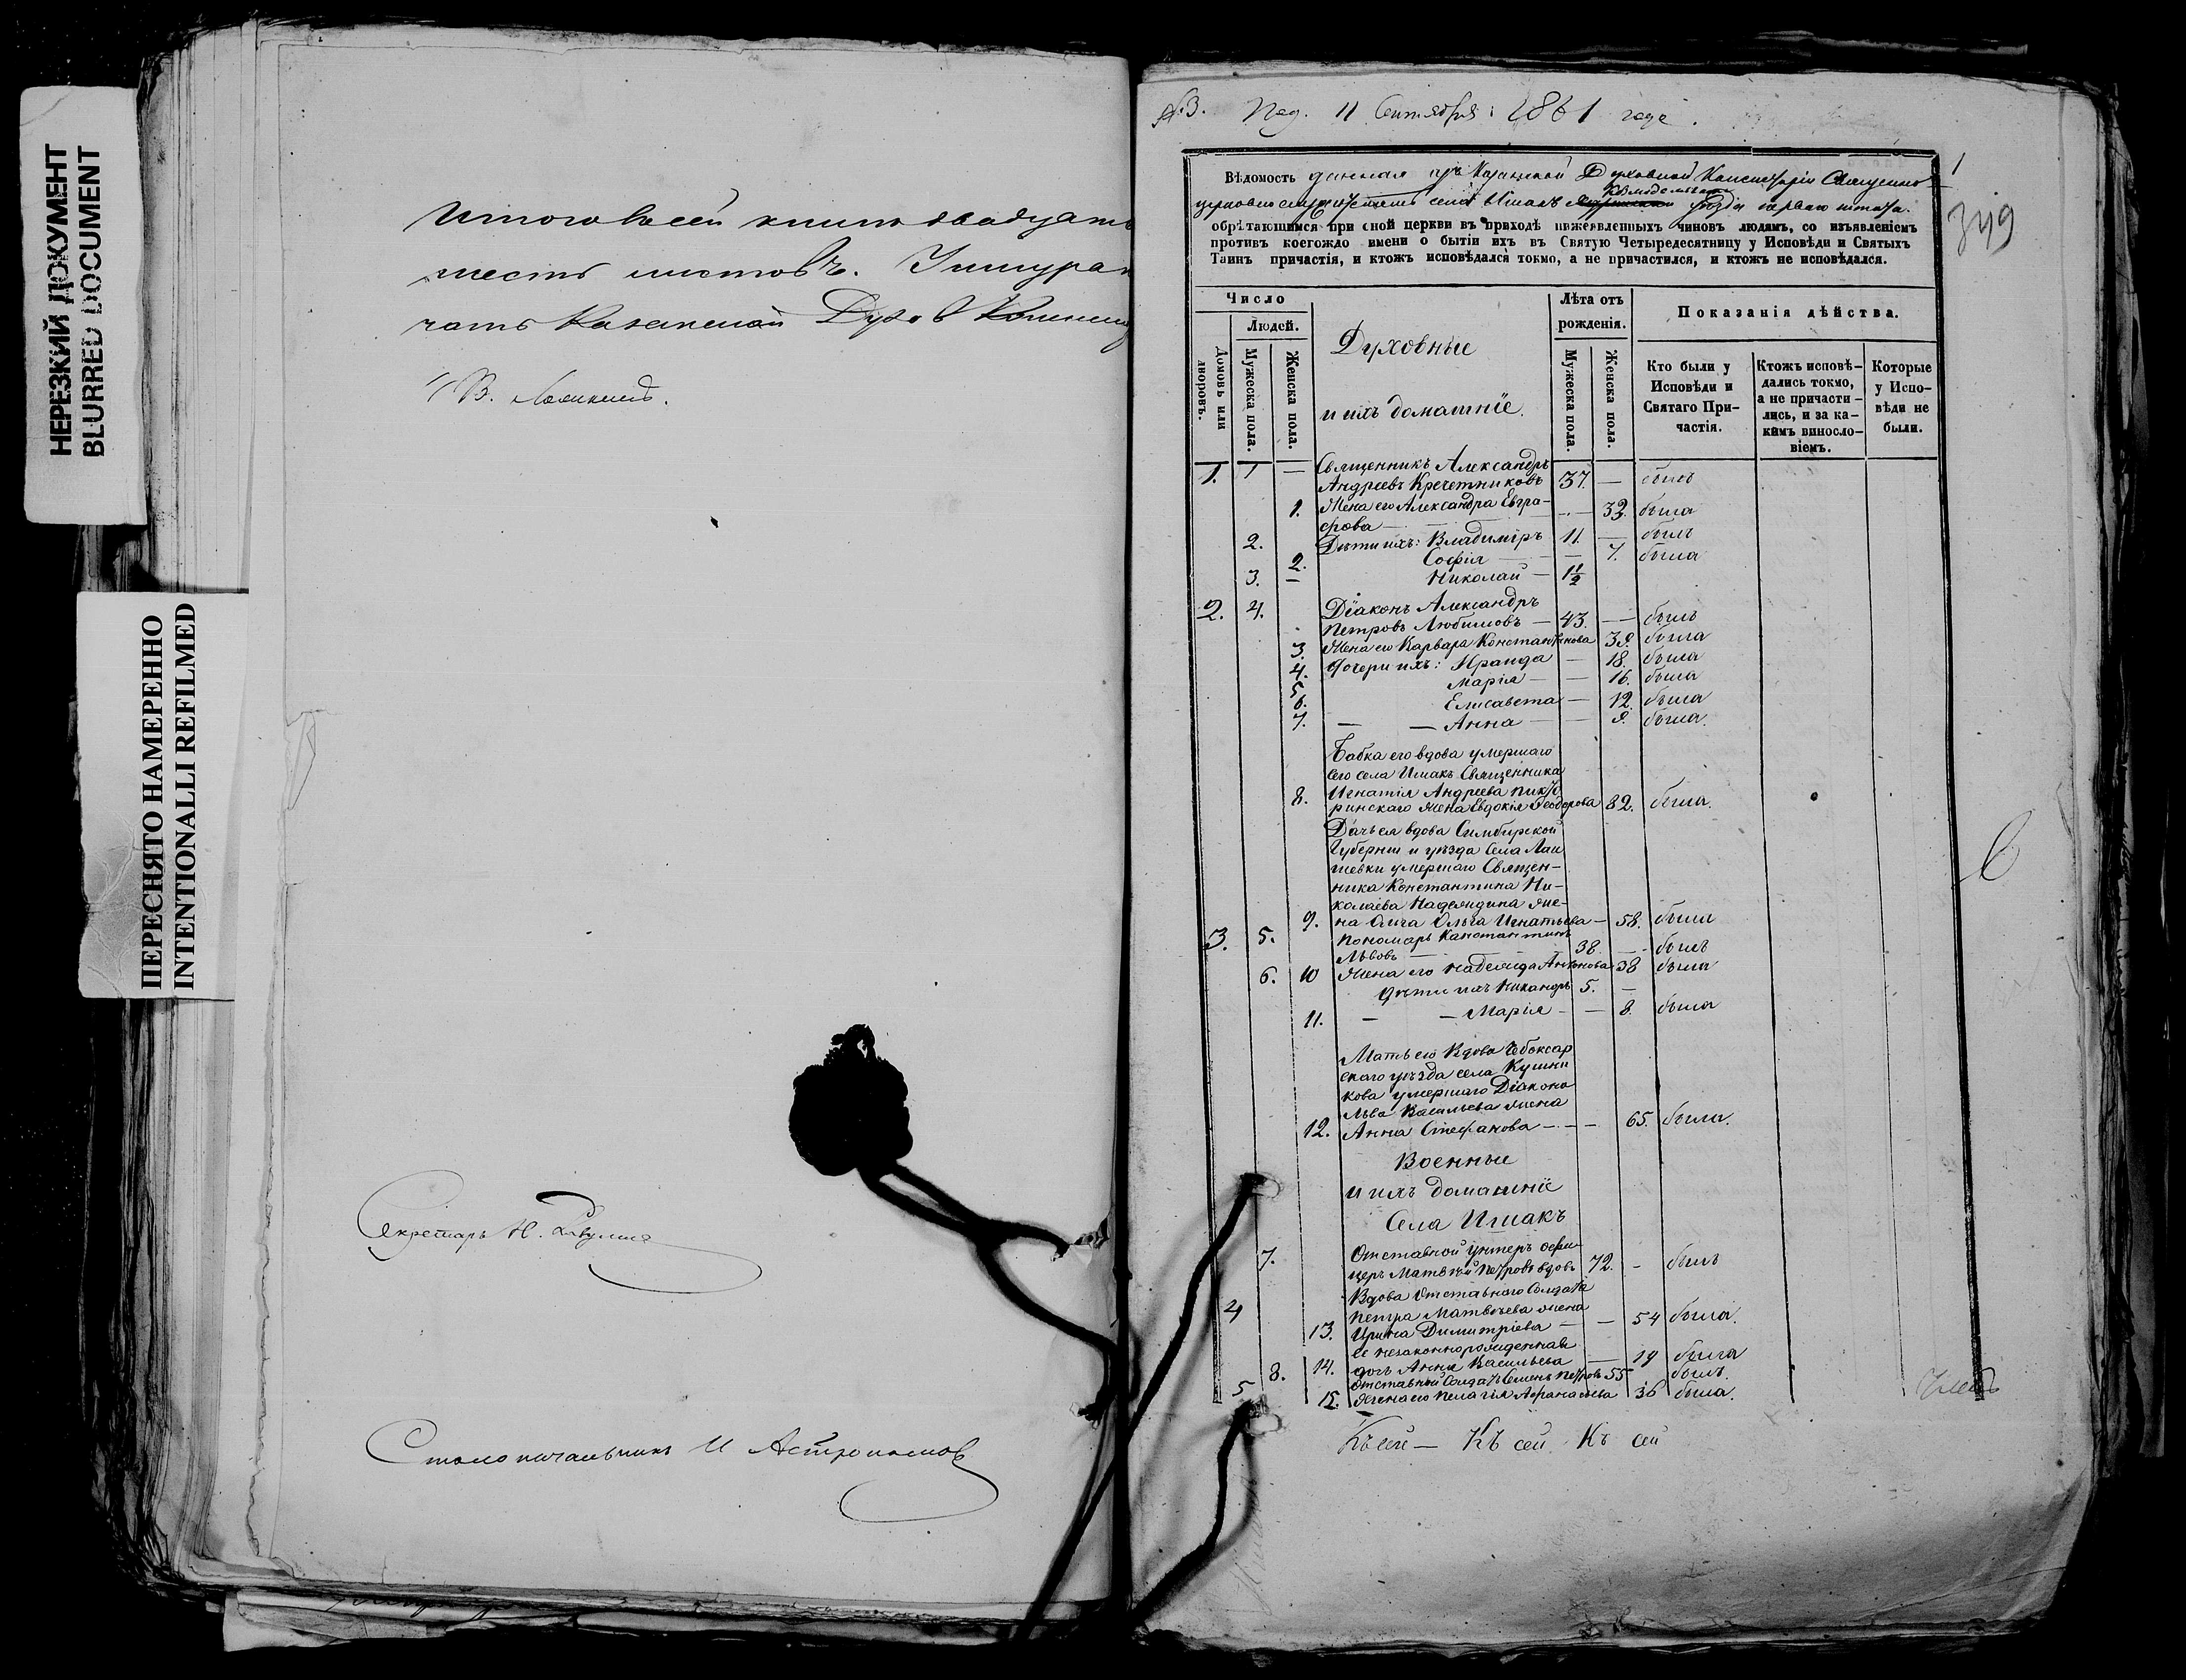 НЕРЕЗКИЙ ДОКУМЕНТ
BLURRED DOCUMENT
ПЕРЕСНЯТО НАМЕРЕННО
INTENTIONALLI REFILMED
Итого въ сей книге двадцать
шесть листовъ.
Казанской Духов
В.
Секретарь Н.
Столоначальникъ И Астрономов
№ 3. Под. 11 Сентября 1861 года.
1
349
Вѣдомость данная изъ Казанской Духовной Консисторіи Священно
Козмодемьян
церковно служителямъ села Ишакъ уѣзда перваго штата.
обрѣтающимся при оной церкви въ приходѣ нижеявленныхъ чиновъ людямъ, со изъявленіемъ
противъ коегождо имени о бытіи ихъ въ Святую Четыредесятницу у Исповѣди и Святыхъ
Таинъ причастія, и ктожъ исповѣдался токмо, а не причастился, и ктожъ не исповѣдался.
Число
Людей.
Домовъ или дворовъ.
Мужеска пола.
Женска пола.
Духовные
и ихъ домашніе.
Лѣта отъ рожденія.
Мужеска пола.
Женска пола.
Показанія дѣйства.
Кто были у Исповѣди и Святаго Причастія.
Ктожъ исповѣдались токмо, а не причастились, и за какимъ винословіемъ.
Которые у Исповѣди не были.
1. 1 — Священникъ Александръ
Андреевъ Кречетниковъ 37. — былъ
1. Жена его Александра Евгра-
фова — — 32. была
2. Дѣти ихъ: Владиміръ 11. — былъ
2. Софія — 7. была
3. — Николай — 1½
2. 4. Діаконъ Александръ
Петровъ Любимовъ — 43. — былъ
3. Жена его Варвара Константинова 39. была
4. Дочери ихъ: Ираида — 18. была
5. Марія — — 16. была
6. Елисавета — 12. была
7. — — Анна — — 9. была.
Бабка его вдова умершаго
сего села Ишакъ Священника
8. Игнатія Андреева Пикто
ринскаго жена Евдокія Ѳеодорова 82. была.
Дочь ея вдова Симбирской
Губерніи и уѣзда села Лаи
шевки умершаго Священ-
ника Константина Ни-
колаева Надеждина же-
9. на Ольга Игнатьева — 58. была
3. 5. Пономарь Константинъ
Львовъ — 38 — былъ
6. 10 Жена его Надежда Антонова 38 была
Дѣти ихъ Никандръ 5. —
11. — — Марія — — 8. была
Мать его Вдова Чебоксар
скаго уѣзда села Кушни
кова умершаго Діакона
Льва Васильева жена
12. Анна Стефанова — — — 65. была.
Военные
и ихъ домашніе
Села Ишакъ
7. Отставной унтеръ офи
церъ Матвѣй Петровъ вдовъ 72. — былъ
4 Вдова отставнаго Солдата
Петра Матвѣева жена
13. Ирина Димитріева — — 54 была.
Ея незаконнорожденная
14. дочь Анна Васильева — 19 была
5 8. Отставный Солдатъ Семенъ Петровъ 55 былъ.
15. Жена его Пелагія Афанасьева 36 была.
Къ сей — Къ сей. Къ сей